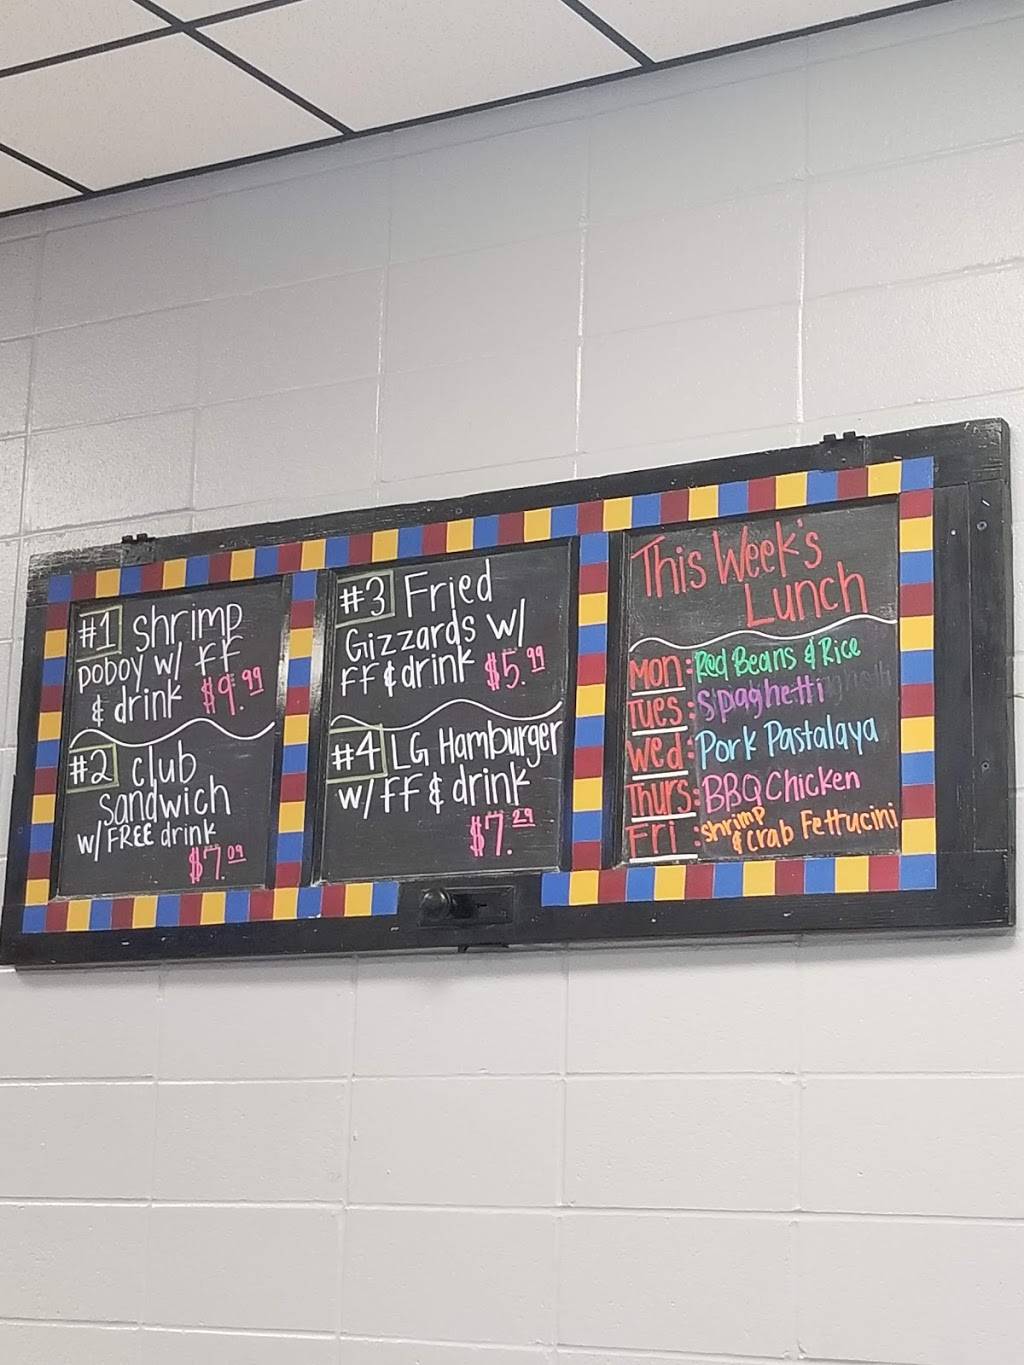 #1 shrimp
poboy w/ FF
& drink $9.99
#2 club
sandwich
w/ FREE drink
$7.09
#3 Fried
Gizzards w/
FF & drink $5.99
#4 LG Hamburger
w/ FF & drink
$7.29
This Week's
Lunch
Mon: Red Beans & Rice
Tues: Spaghetti
Wed: Pork Pastalaya
Thurs: BBQ Chicken
Fri: shrimp
& Crab Fettucini